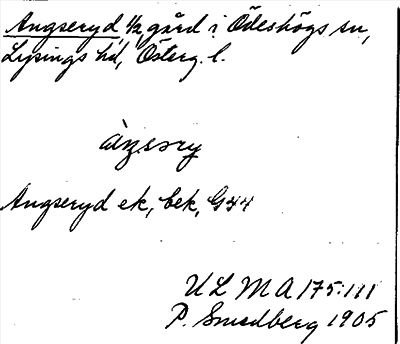 Angseryd, 1/2 gård i Ödeshögs sn,
Lysings hd, Österg. l.
àŋsəry
Angseryd ek, bek, G44
ULMA 175:111
P. Smedberg 1905